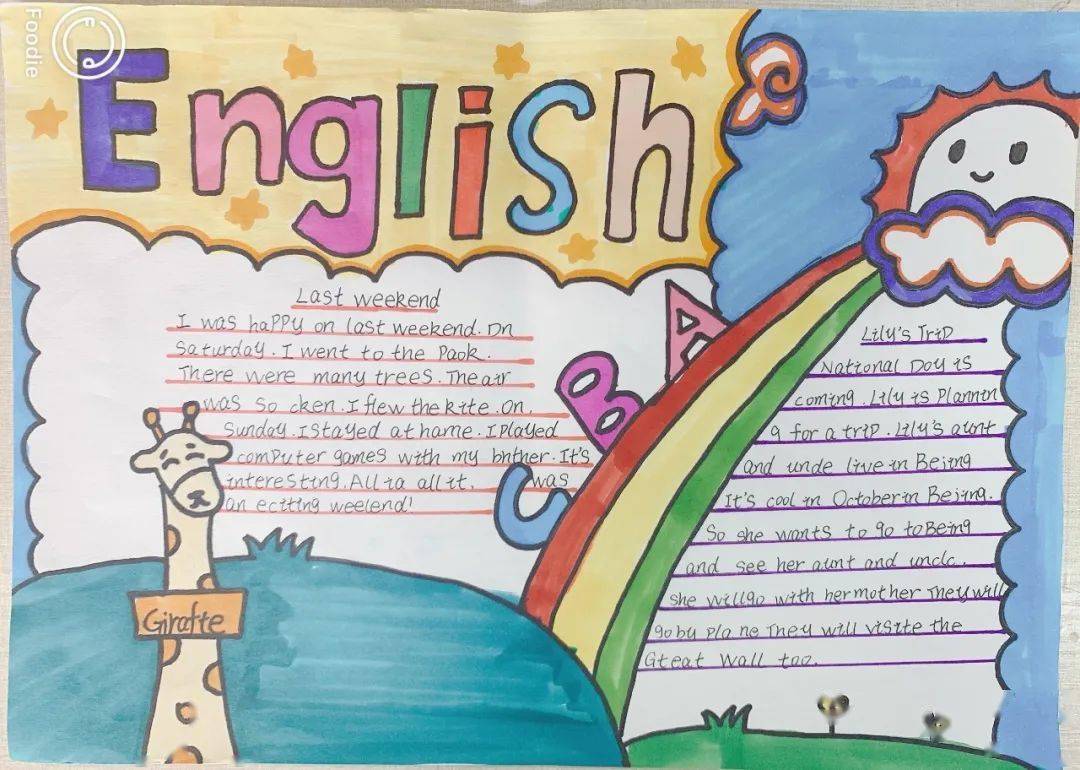 Foodie
English
Last weekend
I was happy on last weekend. On
Saturday. I went to the Paok.
There were many trees. The air
was so cken. I flew the kite. On.
Sunday. I stayed at hame. I Played
comPuter games with my bnther. It's
interesting. All ia all it. was
an eciting weelend!
A
B
C
Girafte
Lily's TriP
National Day is
coming. Lily is Plannin
g for a triP. Lily's aunt
and unde live in Beijing
It's cool in October in Bejing.
So she wants to go to Being
and see her aunt and uncle.
she will go with her mother They will
go by Pla ne They will visite the
Gteat Wall too.